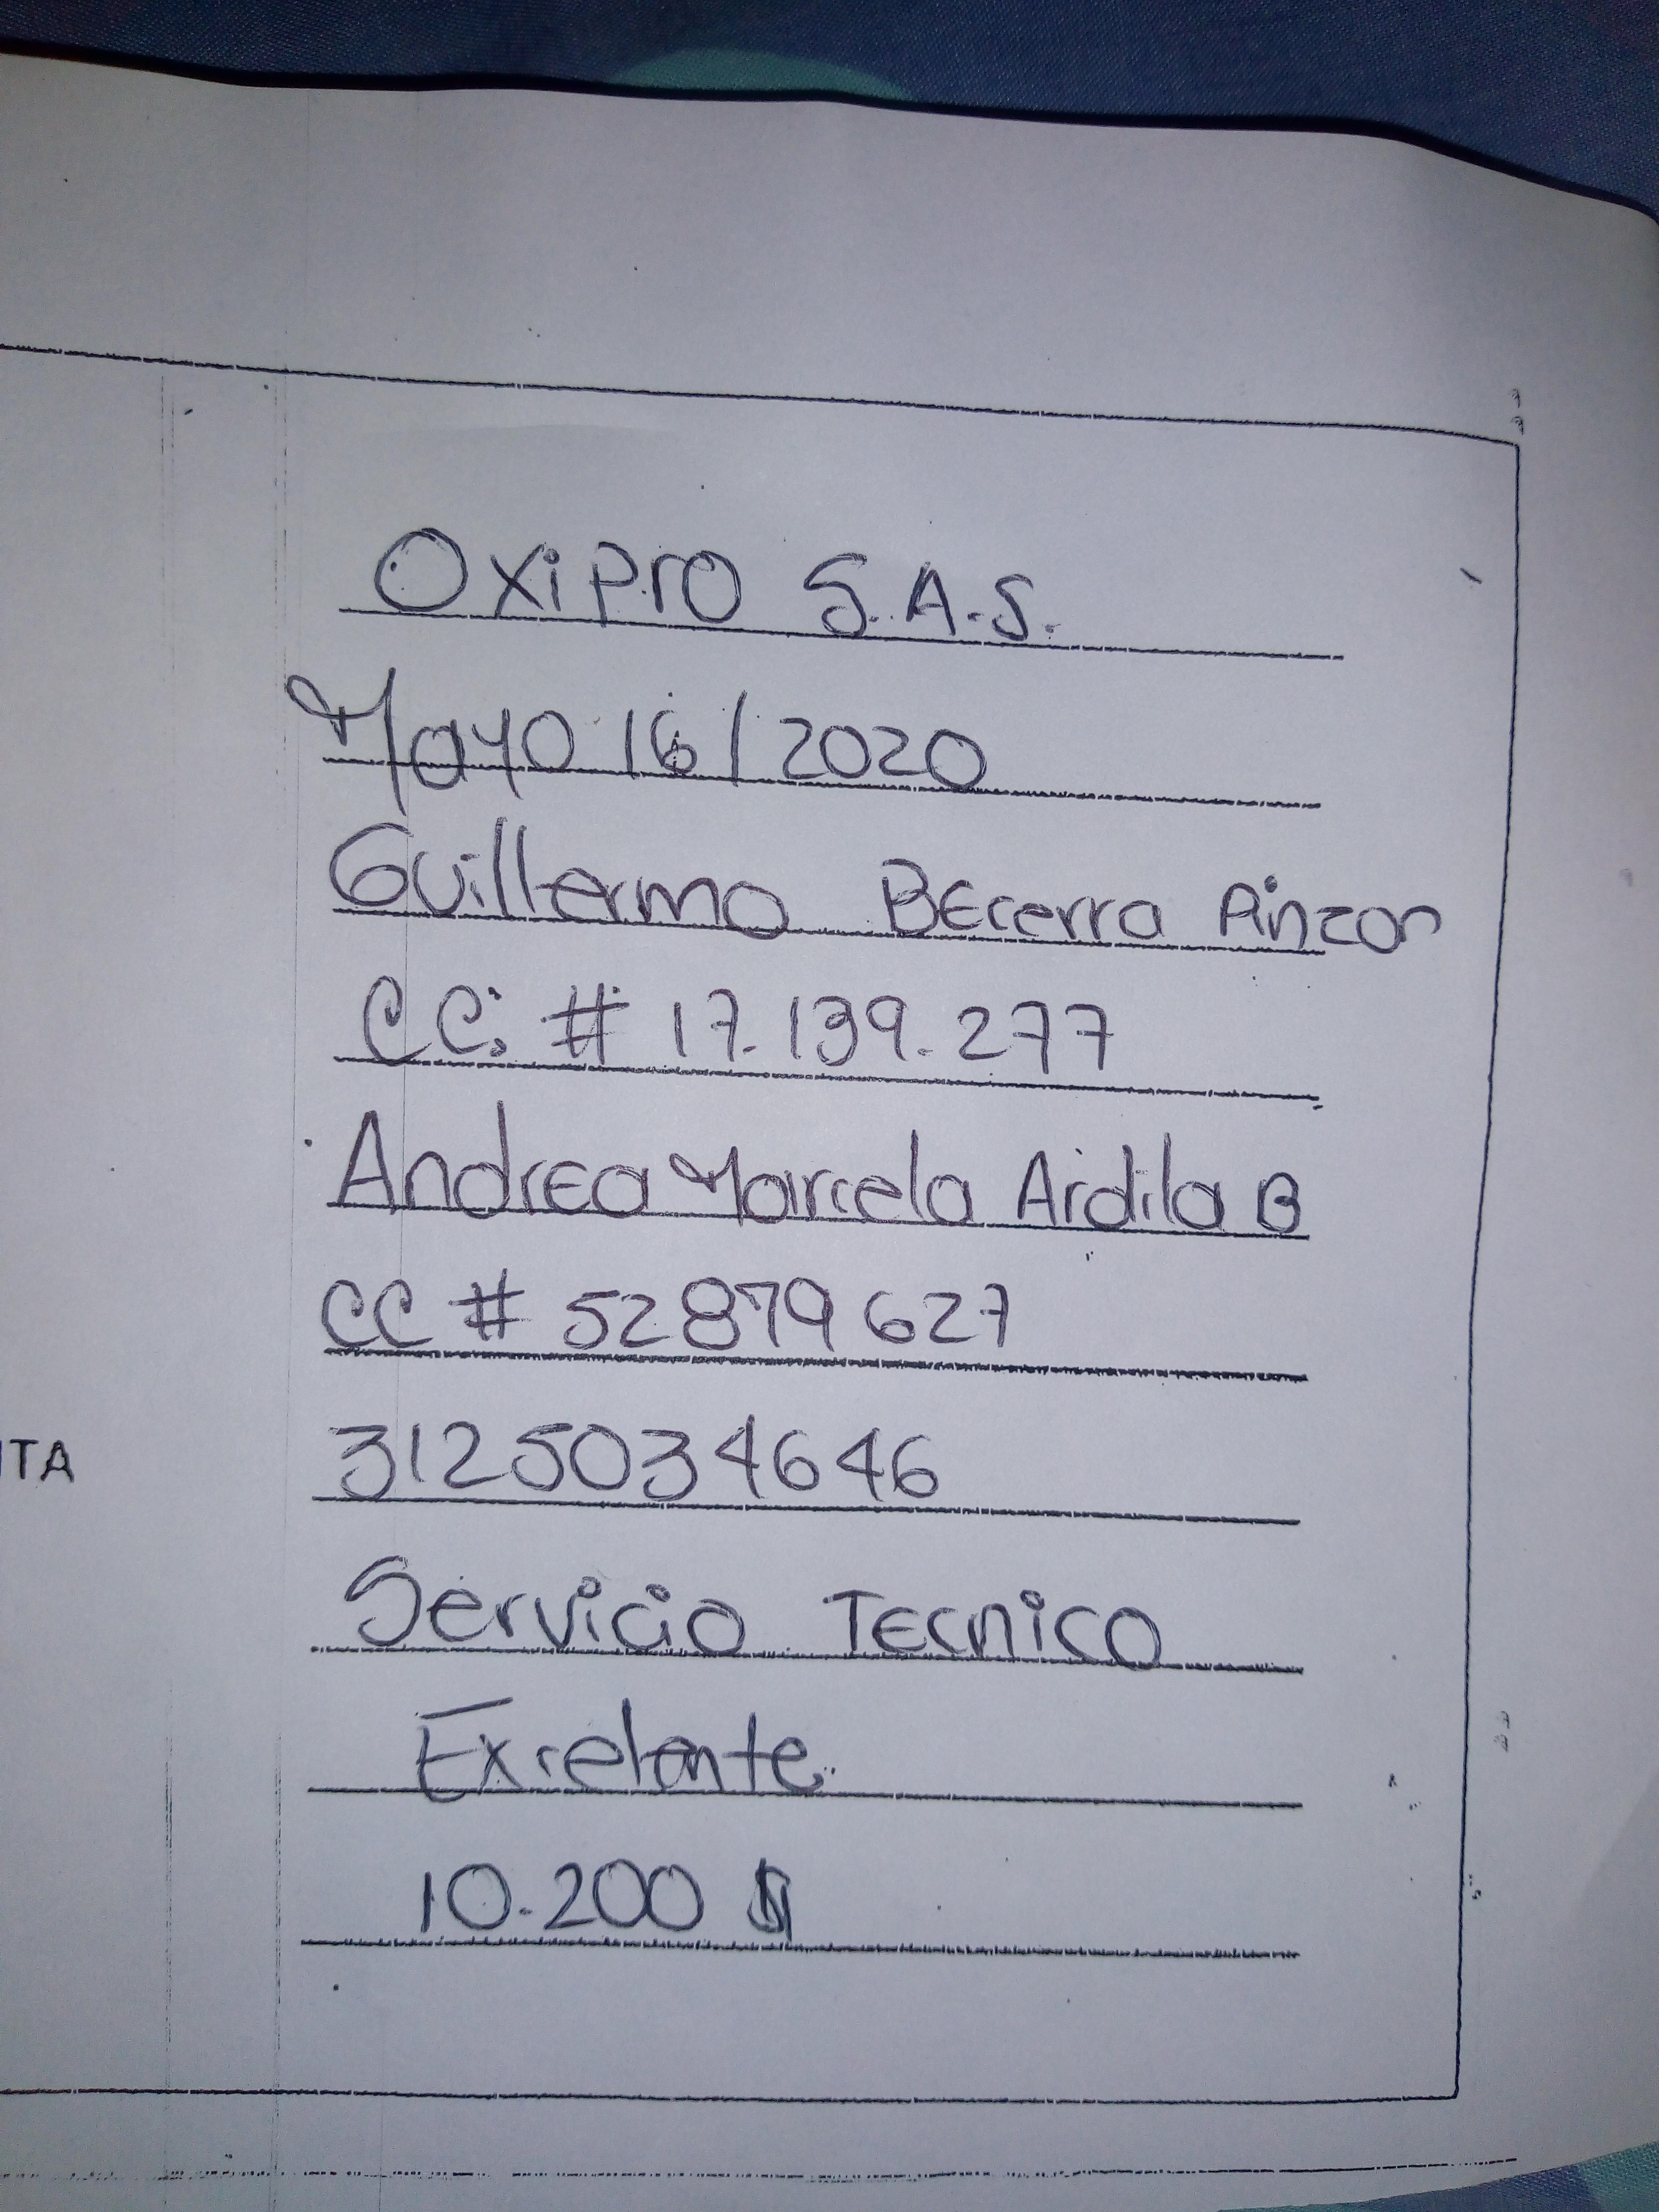 Oxipro S.A.S.
Mayo 16/2020
Guillermo BEcerra Pinzon
CC: # 17.139.277
AndrEa Marcela Ardila B
CC # 52879627
ITA
3125034646
Servicio TEcnico
Excelente.
10.200 $